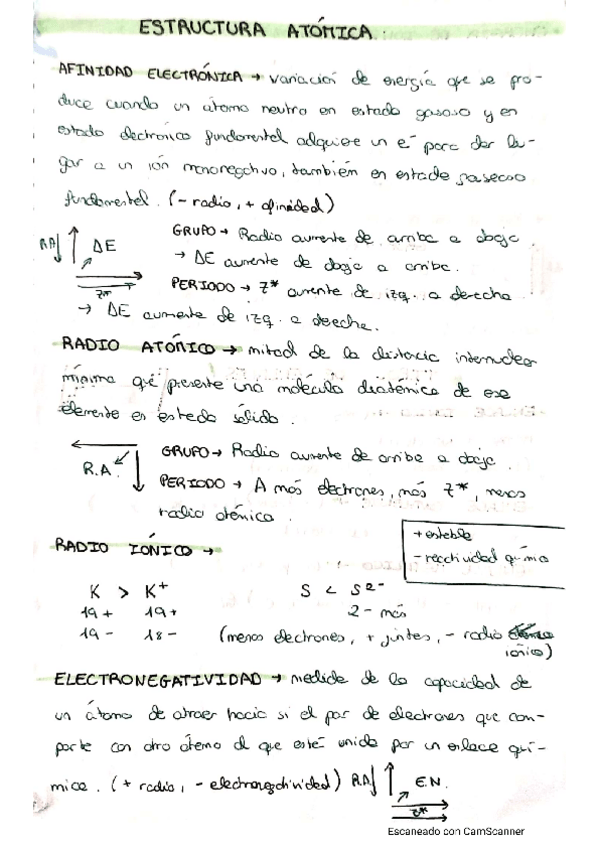 ESTRUCTURA ATÓMICA.
AFINIDAD ELECTRÓNICA → variación de energía que se pro-
duce cuando un átomo neutro en estado gaseoso y en
estado electronico fundamental adquiere un e⁻ para dar lu-
gar a un ión mononegativo, también en estado gaseoso
fundamental. (- radio, + afinidad)
GRUPO → Radio aumenta de arriba a abajo.
RA↓ ↑ ΔE
→ ΔE aumenta de abajo a arriba.
PERIODO → Z* aumenta de izq. a derecha
Z*
→ ΔE aumenta de izq. a derecha.
RADIO ATÓMICO → mitad de la distancia internuclear
mínima que presente una molécula diatómica de ese
elemento en estado sólido.
GRUPO → Radio aumenta de arriba a abajo.
R.A.
PERIODO → A más electrones, más Z*, menos
radio atómico.
+ estable
- reactividad química
RADIO IÓNICO →
K > K⁺ S < S²⁻
19+ 19+ 2- más
19- 18- (menos electrones, + juntos, - radio
iónico)
ELECTRONEGATIVIDAD → medida de la capacidad de
un átomo de atraer hacia si el par de electrones que com-
parte con otro átomo al que esté unido por un enlace quí-
mico. (+ radio, - electronegatividad) RA↓ ↑ E.N.
Z*
Escaneado con CamScanner